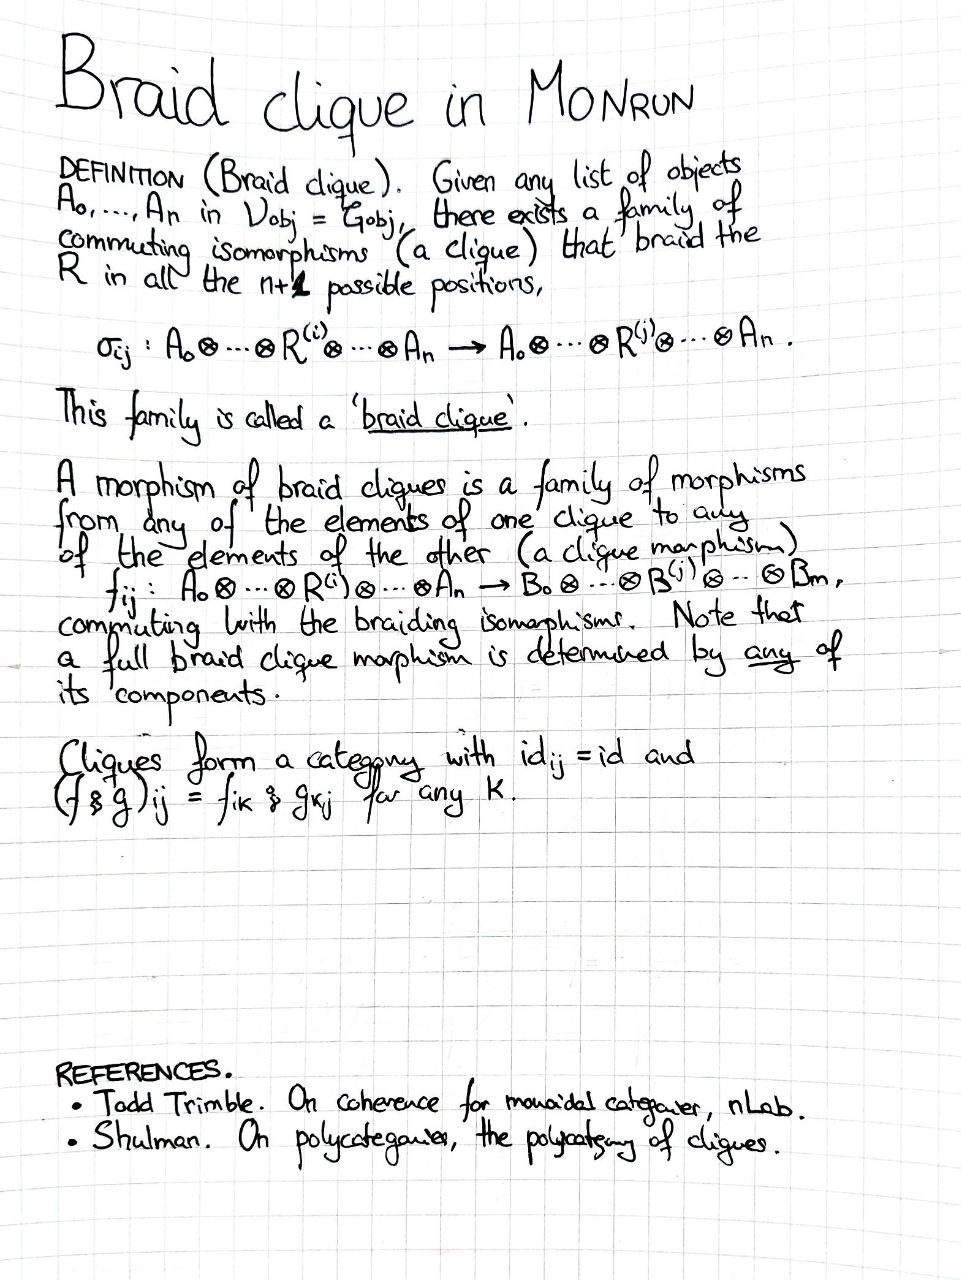 Braid clique in MONRUN
DEFINITION (Braid clique). Given any list of objects
A₀,..., Aₙ in V_obj = G_obj, there exists a family of
commuting isomorphisms (a clique) that braid the
R in all the n+1 possible positions,
σ_ij : A₀⊗···⊗R⁽ⁱ⁾⊗···⊗Aₙ → A₀⊗···⊗R⁽ʲ⁾⊗···⊗Aₙ.
This family is called a 'braid clique'.
A morphism of braid cliques is a family of morphisms
from any of the elements of one clique to any
of the elements of the other (a clique morphism)
f_ij : A₀⊗···⊗R⁽ⁱ⁾⊗···⊗Aₙ → B₀⊗···⊗B⁽ʲ⁾⊗··⊗Bₘ,
commuting with the braiding isomorphisms. Note that
a full braid clique morphism is determined by any of
its components.
Cliques form a category with id_ij = id and
(f ⨾ g)_ij = f_ik ⨾ g_kj for any k.
REFERENCES.
• Todd Trimble. On coherence for monoidal categories, nLab.
• Shulman. On polycategories, the polycategory of cliques.